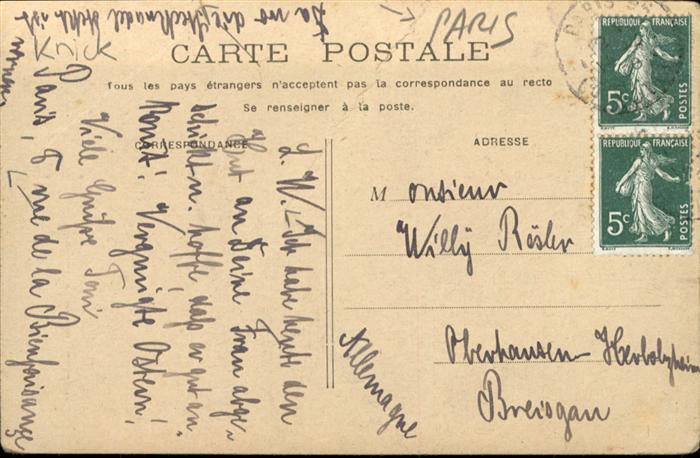 Da wo die Stecknadel steckt ist
Knick
PARIS
CARTE POSTALE
Tous les pays étrangers n'acceptent pas la correspondance au recto
Se renseigner à la poste.
CORRESPONDANCE
ADRESSE
L. W.! Ich habe heute den
Hut an Deine Frau abge-
schickt u. hoffe, dass er gut an-
kommt! Vergnügte Ostern!
Viele Grüsse Toni
Paris, 8 rue de la Bienfaisance
Monsieur
Willy Rösler
Oberhausen Herbolzheim
Breisgau
Allemagne
PARIS
RÉPUBLIQUE FRANÇAISE
5c
POSTES
RÉPUBLIQUE FRANÇAISE
5c
POSTES